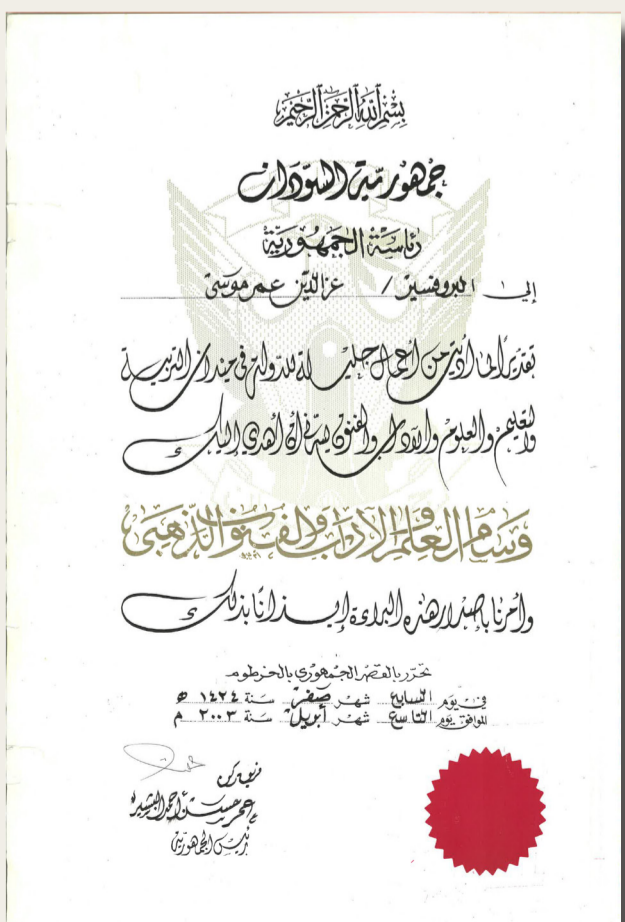 بسم الله الرحمن الرحيم
جمهورية السودان
رئاسة الجمهورية
إلى البروفسير / عزالدين عمر موسى
تقديراً لما أديتم من أعمال جليلة للدولة في ميدان التربية
والتعليم والعلوم والآداب والفنون يسرني أن أهدي إليك
وسام العلم والآداب والفنون الذهبي
وأمرنا بإصدار هذه البراءة إيذاناً بذلك
تحرر بالقصر الجمهوري بالخرطوم
في يوم السابع شهر صفر سنة ١٤٢٤ ه
الموافق يوم التاسع شهر أبريل سنة ٢٠٠٣ م
فريق ركن
عمر حسن أحمد البشير
رئيس الجمهورية